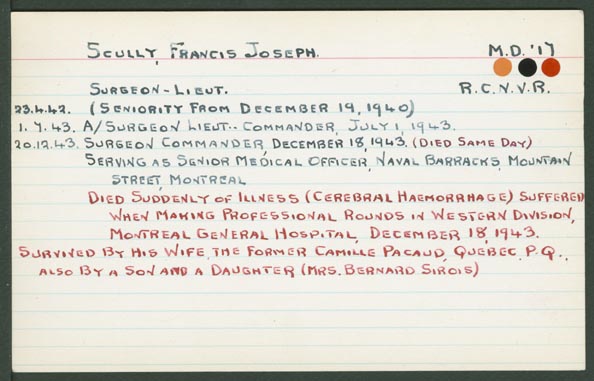 SCULLY, FRANCIS JOSEPH. M.D. '17
SURGEON-LIEUT. R.C.N.V.R.
23.4.42. (SENIORITY FROM DECEMBER 19, 1940)
1.7.43. A/SURGEON LIEUT.-COMMANDER, JULY 1, 1943.
20.12.43. SURGEON COMMANDER, DECEMBER 18, 1943. (DIED SAME DAY)
SERVING AS SENIOR MEDICAL OFFICER, NAVAL BARRACKS, MOUNTAIN
STREET, MONTREAL
DIED SUDDENLY OF ILLNESS (CEREBRAL HAEMORRHAGE) SUFFERED
WHEN MAKING PROFESSIONAL ROUNDS IN WESTERN DIVISION,
MONTREAL GENERAL HOSPITAL, DECEMBER 18, 1943.
SURVIVED BY HIS WIFE, THE FORMER CAMILLE PACAUD, QUEBEC, P.Q.,
ALSO BY A SON AND A DAUGHTER (MRS. BERNARD SIROIS)